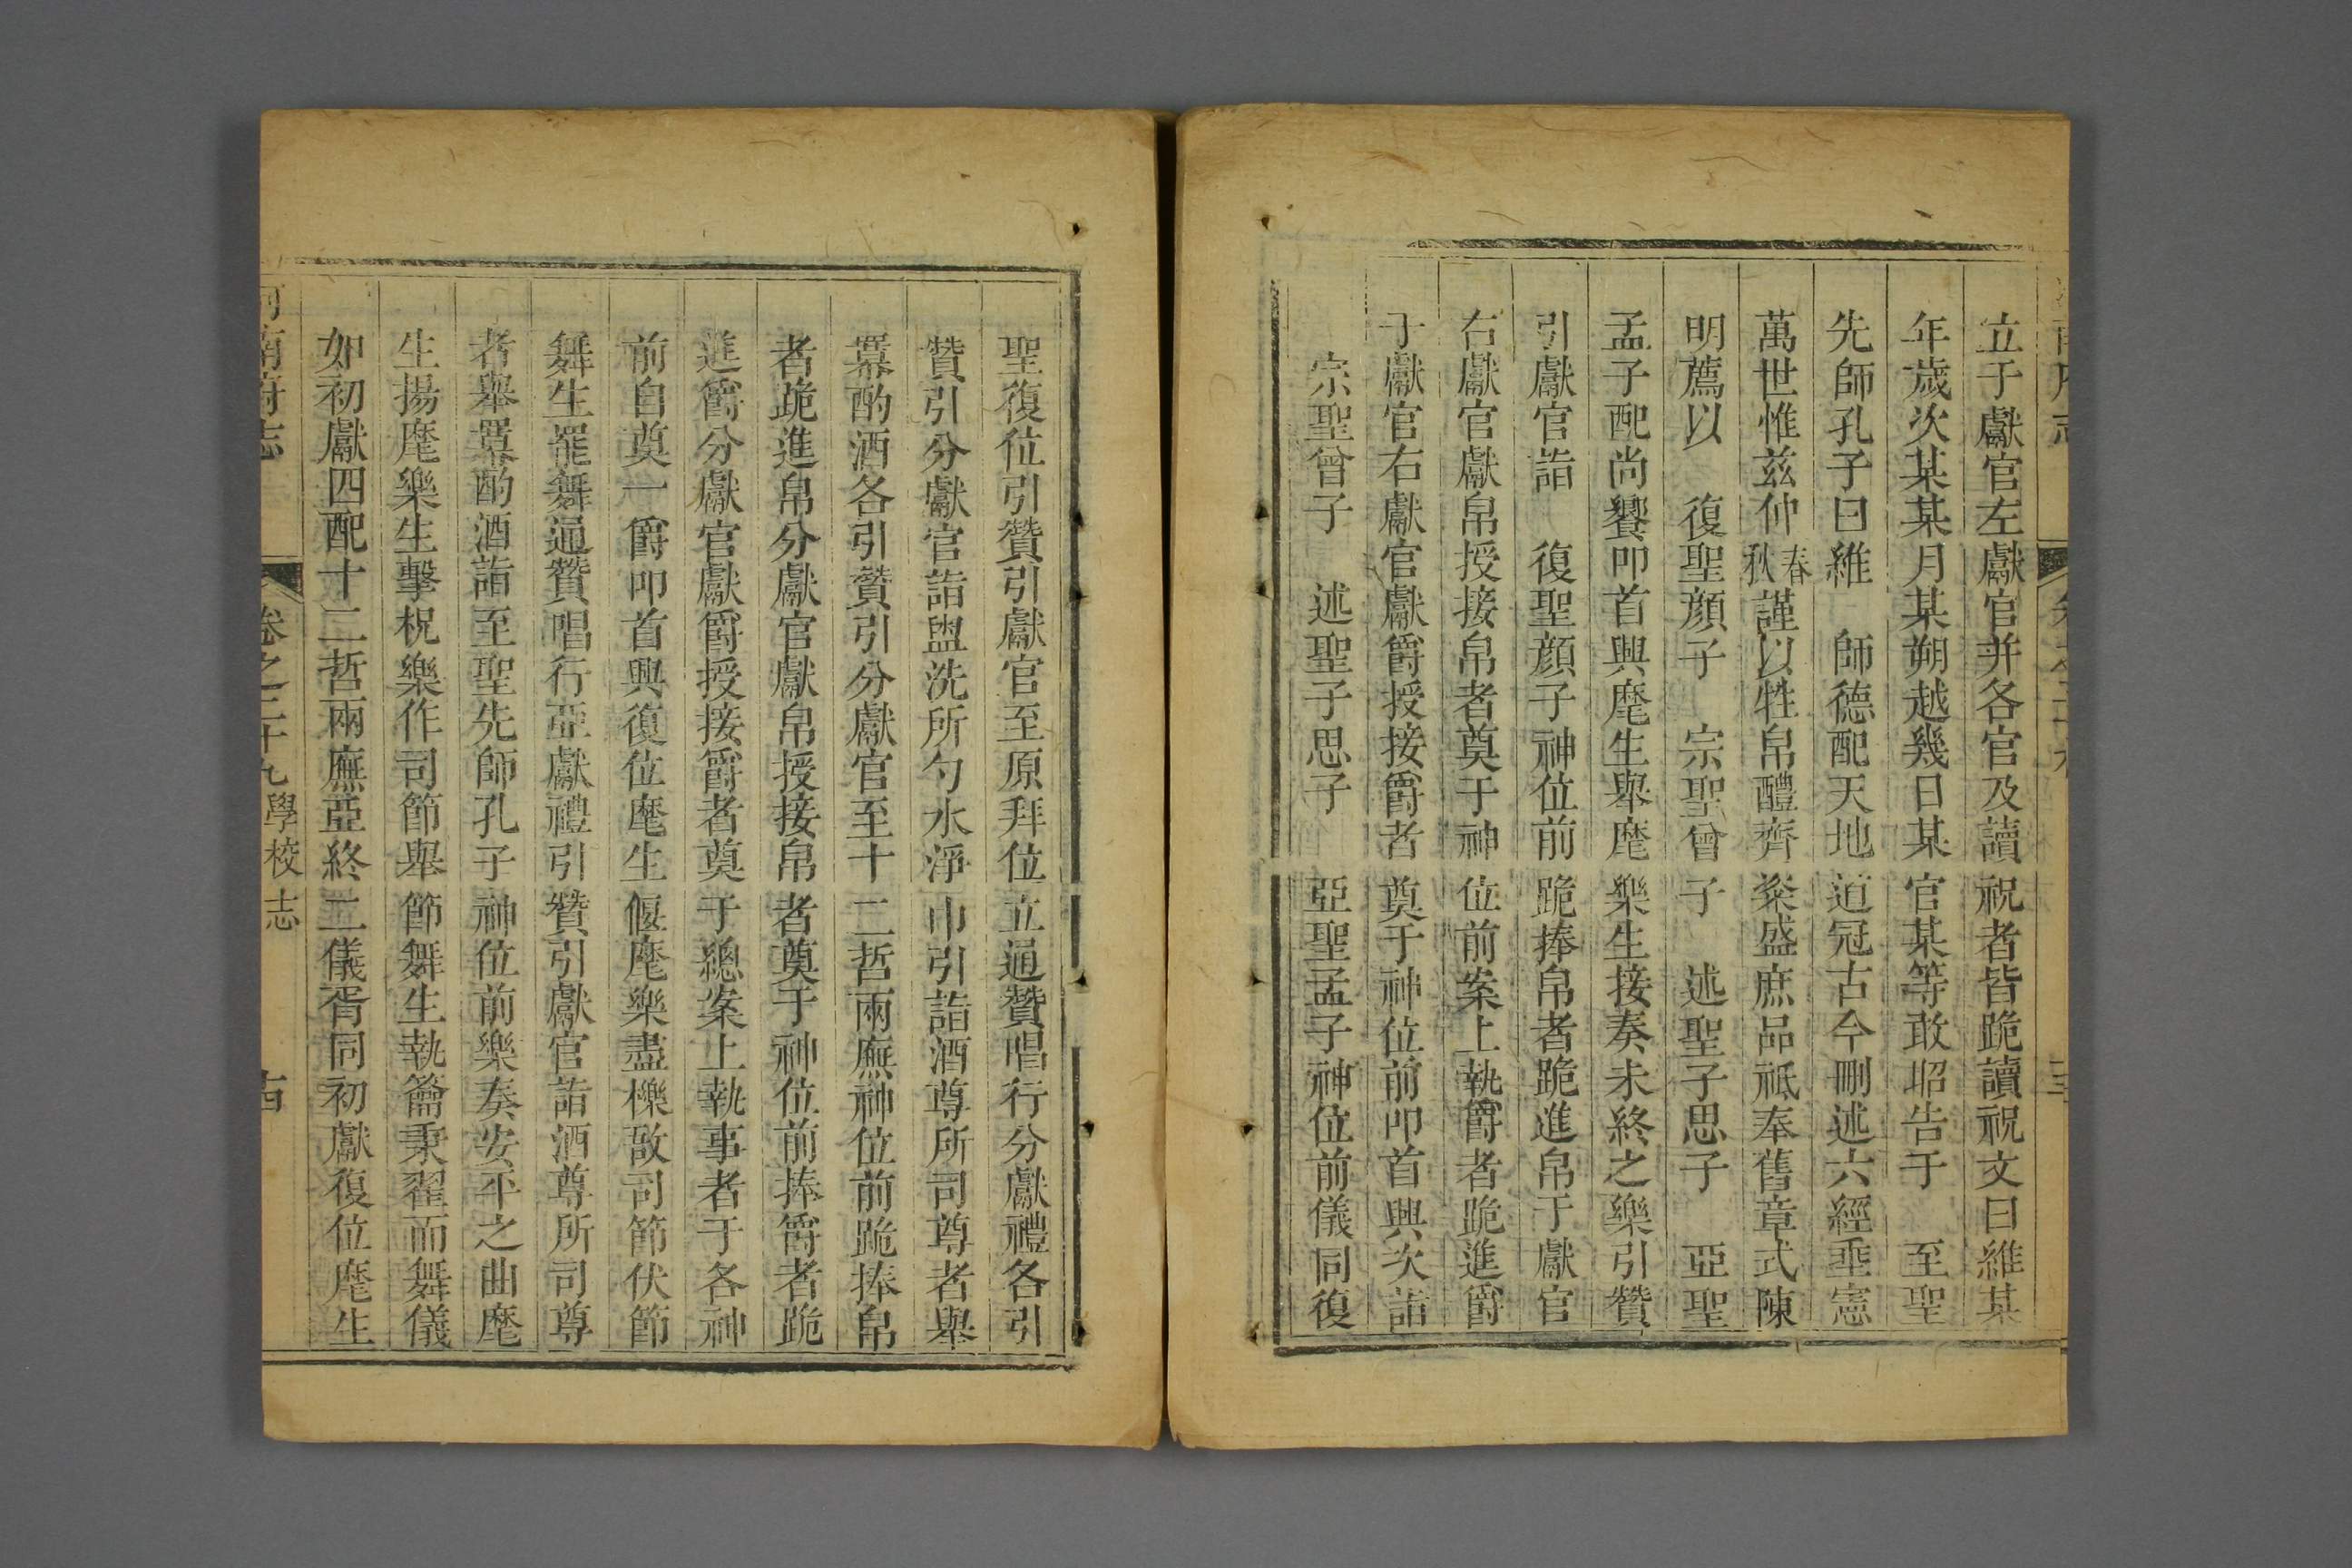 立于獻官左獻官并各官及讀祝者皆跪讀祝文曰維某
年歲次某某月某朔越幾日某官某等敢昭告于　至聖
先師孔子曰維　師德配天地道冠古今刪述六經垂憲
萬世惟茲仲春秋謹以牲帛醴齊粢盛庶品祇奉舊章式陳
明薦以　復聖顏子　宗聖曾子　述聖子思子　亞聖
孟子配尚饗叩首興麾生舉麾樂生接奏未終之樂引贊
引獻官詣　復聖顏子神位前跪捧帛者跪進帛于獻官
右獻官獻帛授接帛者奠于神位前案上執爵者跪進爵
于獻官右獻官獻爵授接爵者奠于神位前叩首興次詣
宗聖曾子　述聖子思子　亞聖孟子神位前儀同復
聖復位引贊引獻官至原拜位立通贊唱行分獻禮各引
贊引分獻官詣盥洗所勺水淨巾引詣酒尊所司尊者舉
冪酌酒各引贊引分獻官至十二哲兩廡神位前跪捧帛
者跪進帛分獻官獻帛授接帛者奠于神位前捧爵者跪
進爵分獻官獻爵授接爵者奠于總案上執事者于各神
前自奠一爵叩首興復位麾生偃麾樂盡櫟敔司節伏節
舞生罷舞通贊唱行亞獻禮引贊引獻官詣酒尊所司尊
者舉冪酌酒詣至聖先師孔子神位前樂奏安平之曲麾
生揚麾樂生擊柷樂作司節舉節舞生執籥秉翟而舞儀
如初獻四配十二哲兩廡亞終二儀胥同初獻復位麾生
河南府志　卷之二十九學校志　十四